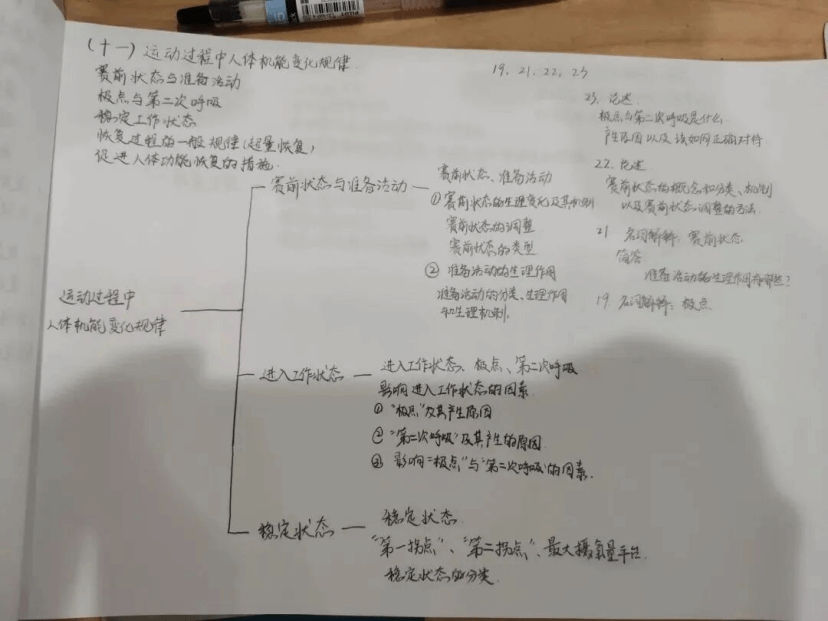 (十一) 运动过程中人体机能变化规律
赛前状态与准备活动
极点与第二次呼吸
稳定工作状态
恢复过程的一般规律(超量恢复)
促进人体功能恢复的措施.
19、21、22、23
23. 论述.
极点与第二次呼吸是什么
产生原因以及该如何正确对待
22. 论述.
赛前状态的概念和分类、机制
以及赛前状态调整的方法.
21 名词解释: 赛前状态
简答
准备活动的生理作用有哪些?
19 名词解释: 极点
运动过程中
人体机能变化规律
赛前状态与准备活动
赛前状态、准备活动
①赛前状态的生理变化及其机制
赛前状态的调整
赛前状态的类型
②准备活动的生理作用
准备活动的分类、生理作用
和生理机制.
进入工作状态
进入工作状态、极点、第二次呼吸
影响进入工作状态的因素
①"极点"及其产生原因
②"第二次呼吸"及其产生的原因
③影响"极点"与"第二次呼吸"的因素.
稳定状态
稳定状态
"第一拐点"、"第二拐点"、最大摄氧量平台.
稳定状态的分类.